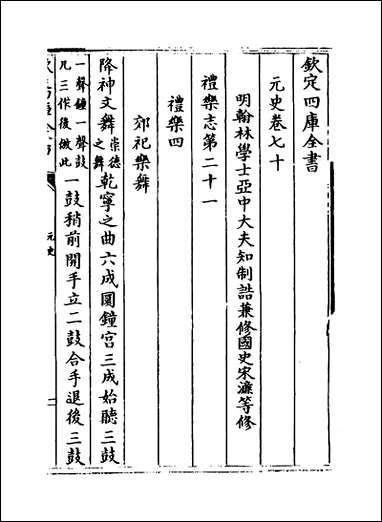 欽定四庫全書
元史卷七十
明翰林學士亞中大夫知制誥兼修國史宋濂等修
禮樂志第二十一
禮樂四
郊祀樂舞
降神文舞崇德之舞乾寧之曲六成圜鐘宮三成始聽三鼓
一聲鐘一聲鼓凡三作後倣此一鼓稍前開手立二鼓合手退後三鼓
元史